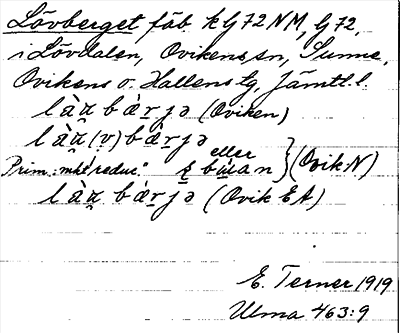 Lövberget fäb. k G 72 NM, G 72,
i Lövdalen, Ovikens sn, Sunne,
Ovikens o. Hallens tg, Jämtl. l.
là̤u̯ bæ̀rjə (Oviken)
là̤u̯(v) bæ̀rjə
eller
Prim: "mkt reduc." bɯan (Ovik: N)
là̤u̯ bæ̀rjə (Ovik EA)
E. Terner 1919
Ulma 463:9